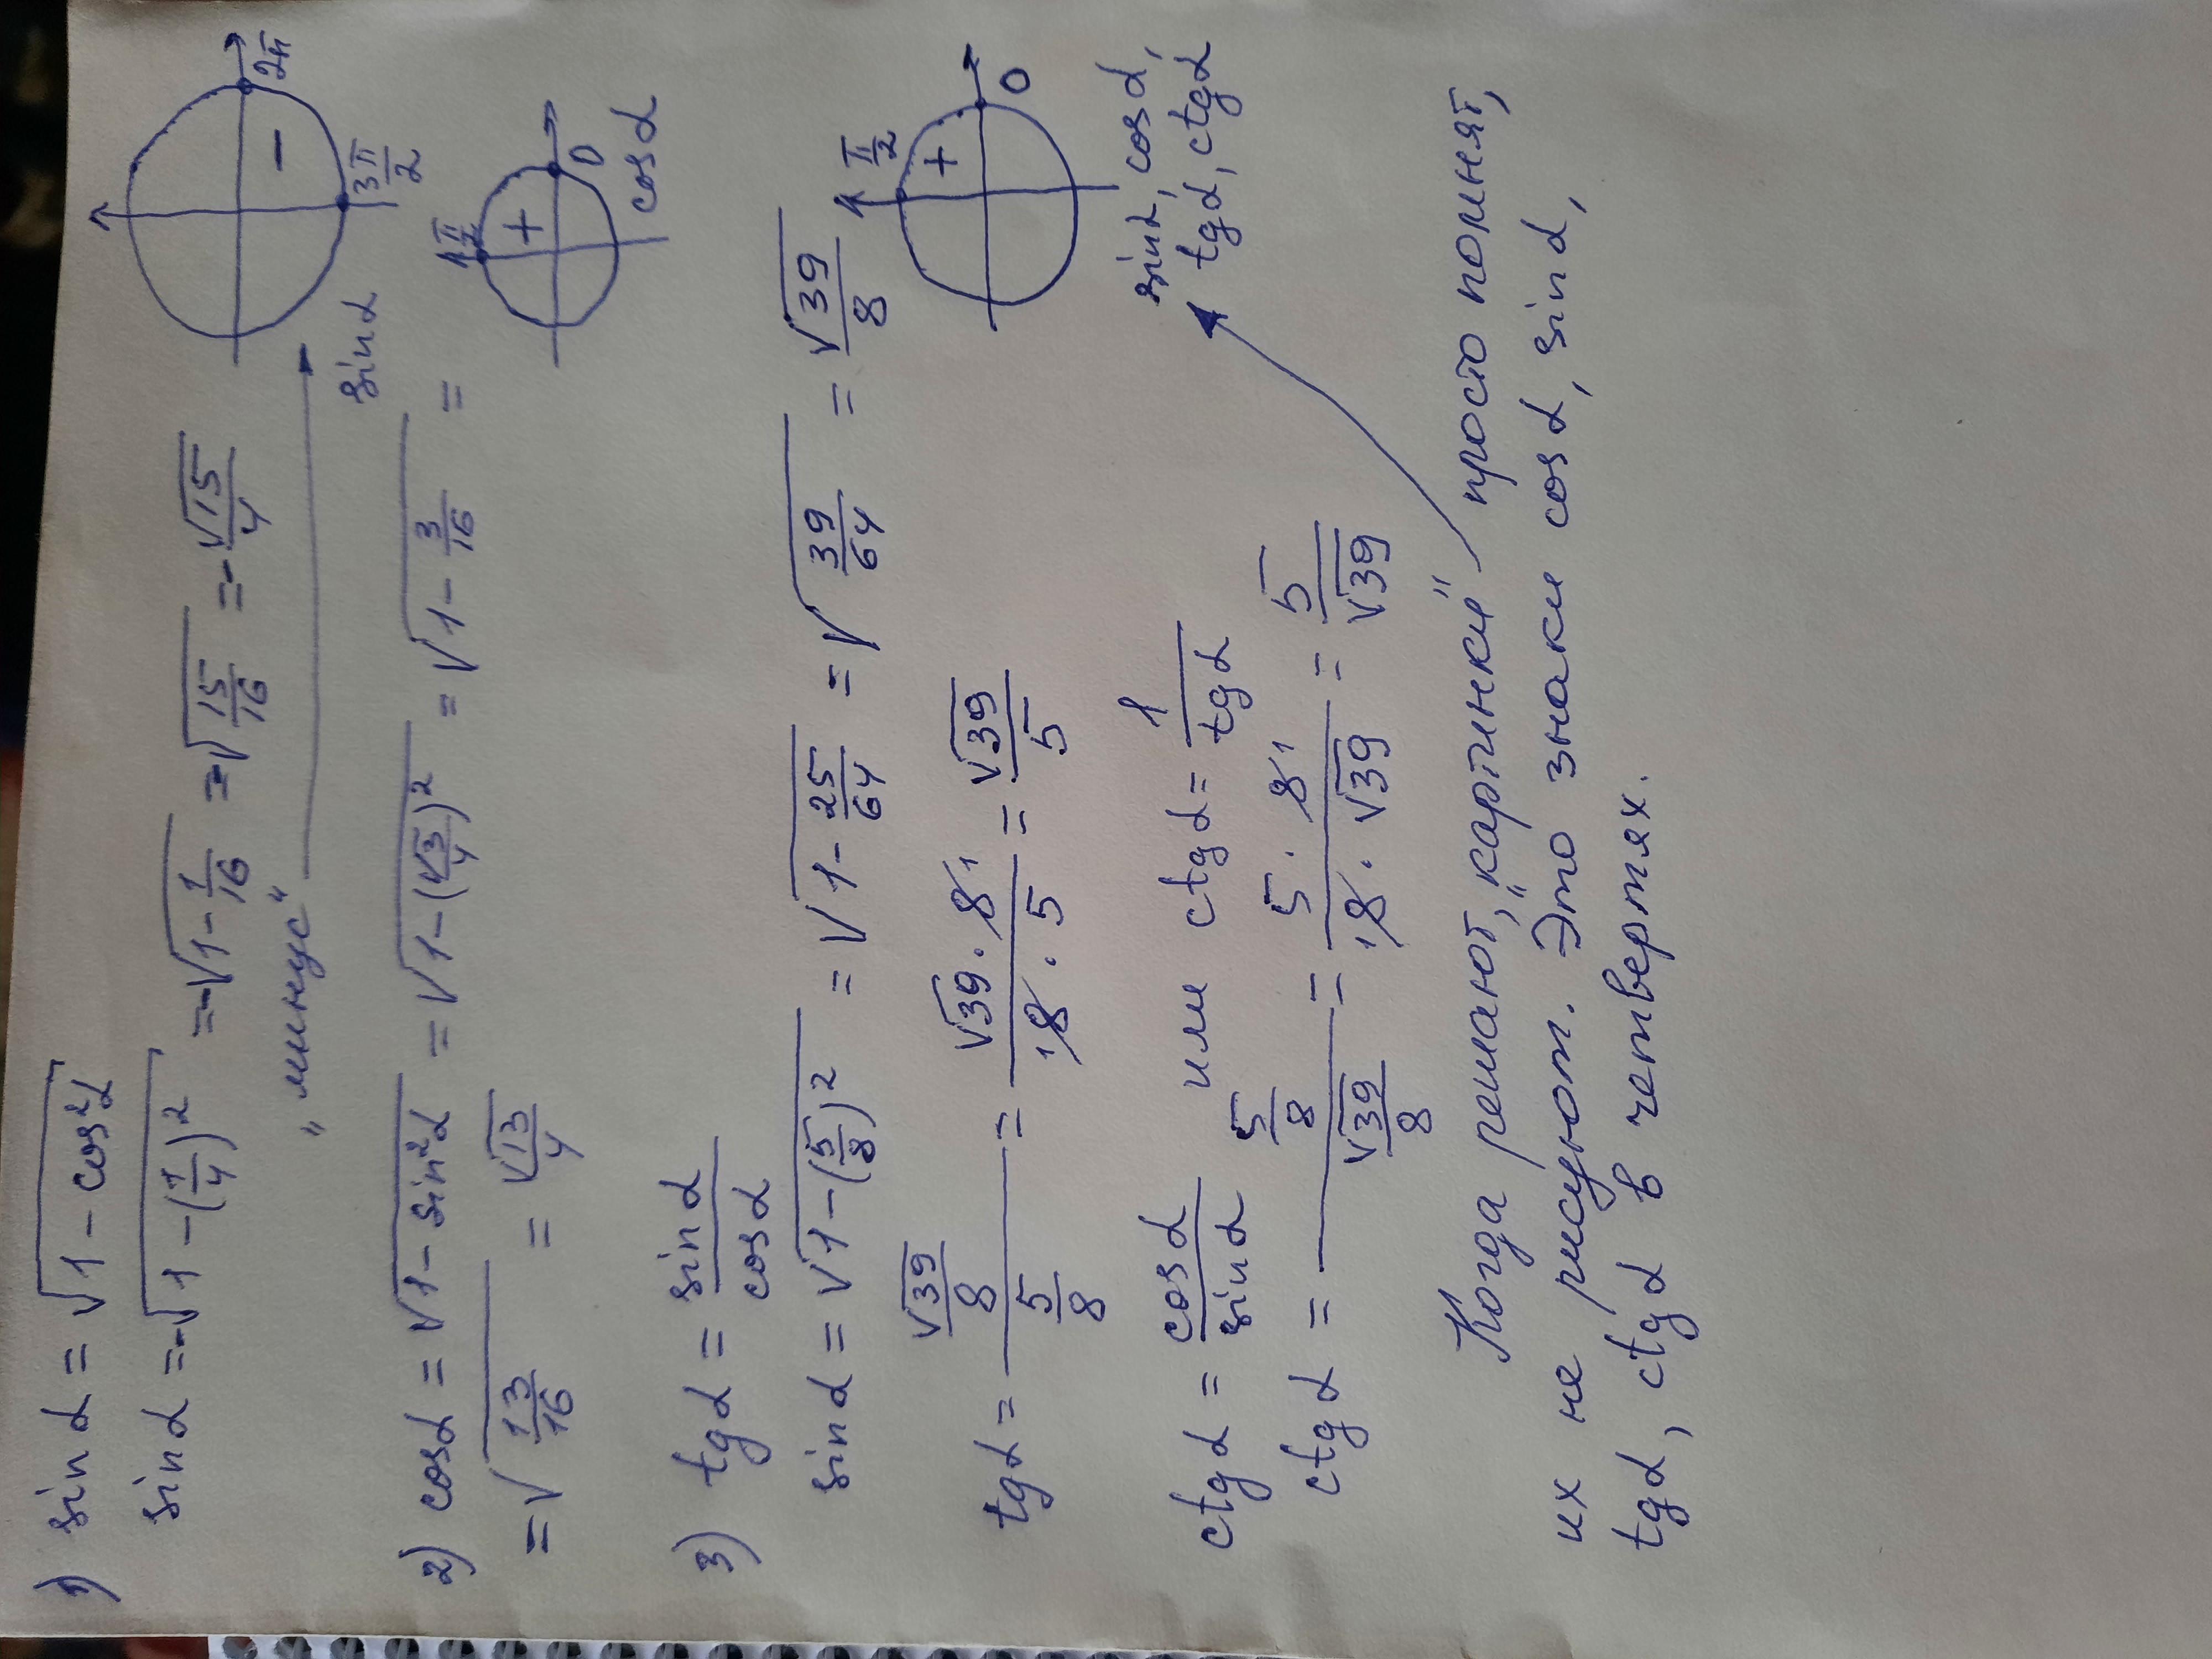 1) sin α = √(1 - cos²α)
sin α = -√(1 - (1/4)²) = -√(1 - 1/16) = -√(15/16) = -√15/4
„минус“
3π/2
2π
sin α
2) cos α = √(1 - sin²α) = √(1 - (√3/4)²) = √(1 - 3/16) =
= √(13/16) = √13/4
π/2
+
0
cos α
3) tg α = sin α/cos α
sin α = √(1 - (5/8)²) = √(1 - 25/64) = √(39/64) = √39/8
tg α = (√39/8)/(5/8) = (√39 · 8)/(8 · 5) = √39/5
π/2
+
0
sin α, cos α,
tg α, ctg α
ctg α = cos α/sin α или ctg α = 1/tg α
ctg α = (5/8)/(√39/8) = (5 · 8)/(8 · √39) = 5/√39
Когда решают, „картинки“ просто помнят,
их не рисуют. Это знаки cos α, sin α,
tg α, ctg α в четвертях.